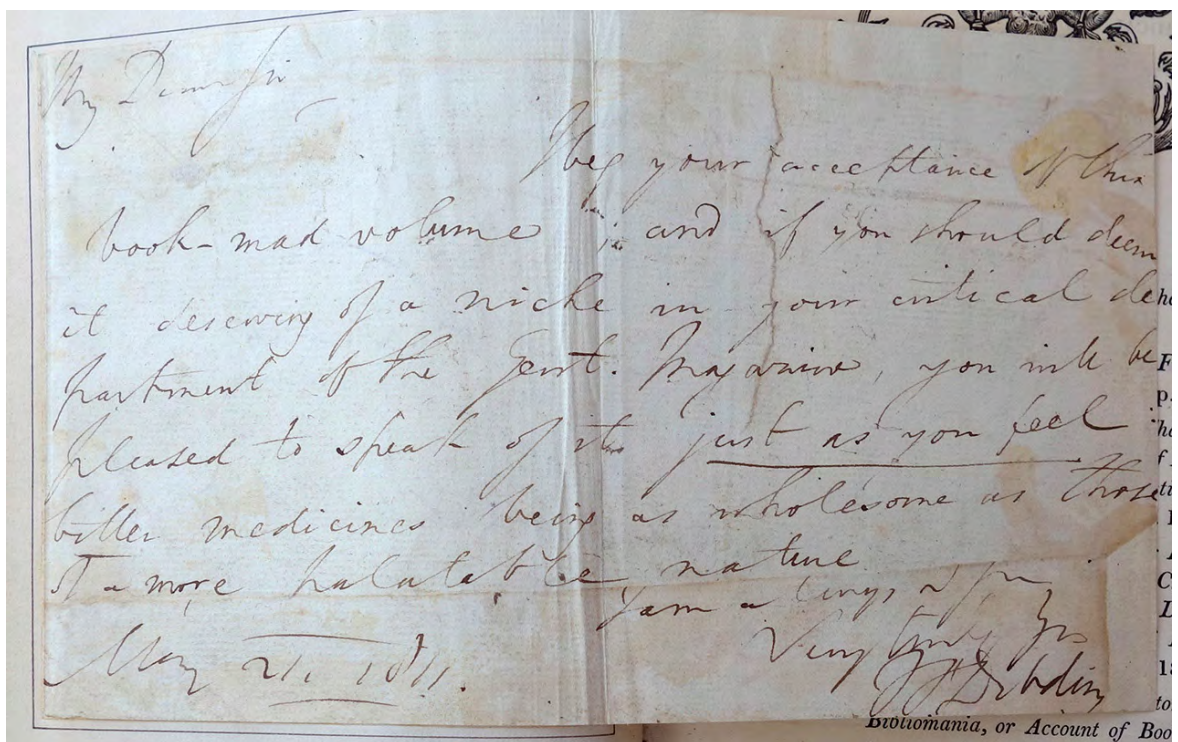 My Dear Sir
I beg your acceptance of this
book-mad volume; and if you should deem
it deserving of a niche in your critical de
partment of the Gent. Magazine, you will be
pleased to speak of it just as you feel
bitter medicines being as wholesome as those
of a more palatable nature
I am always D Sir
Very truly Yrs
T F Dibdin
May 21. 1811.
Bibliomania, or Account of Boo